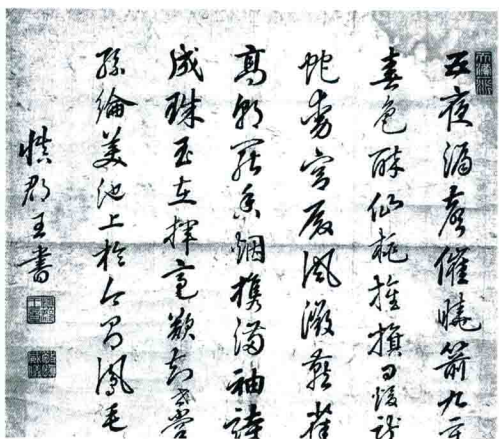 五夜漏聲催曉箭九重
春色醉仙桃旌旗日暖龍
蛇動宮殿風微燕雀
高朝罷香烟携滿袖詩
成珠玉在揮毫欲知世掌
絲綸美池上於今有鳳毛
慎郡王書